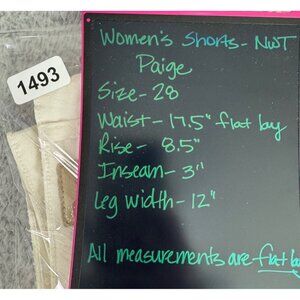 Women's Shorts - NWT
Paige
1493
Size - 28
Waist - 17.5" flat lay
Rise - 8.5"
Inseam - 3"
Leg width - 12"
All measurements are flat